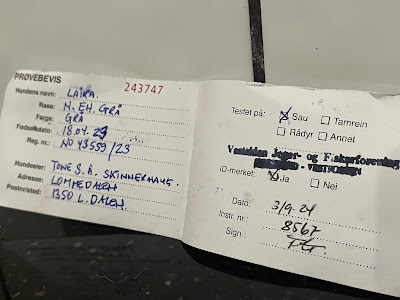 PRØVEBEVIS
243747
Hundens navn: LAIKA.
Rase: N. EH. GRÅ
Farge: GRÅ
Fødselsdato: 18.04.23
Reg. nr.: NO43559/23
Hundeeier: TONE S. A. SKINNERHAUG.
Adresse: LOMMEDALEN
Postnr/sted: 1350 L. DALEN.
Testet på: Sau Tamrein
Rådyr Annet
Jeger- og Fiskerforening
ID-merket: Ja Nei
Dato: 3/9.24
Instr. nr.: 8567
Sign.: